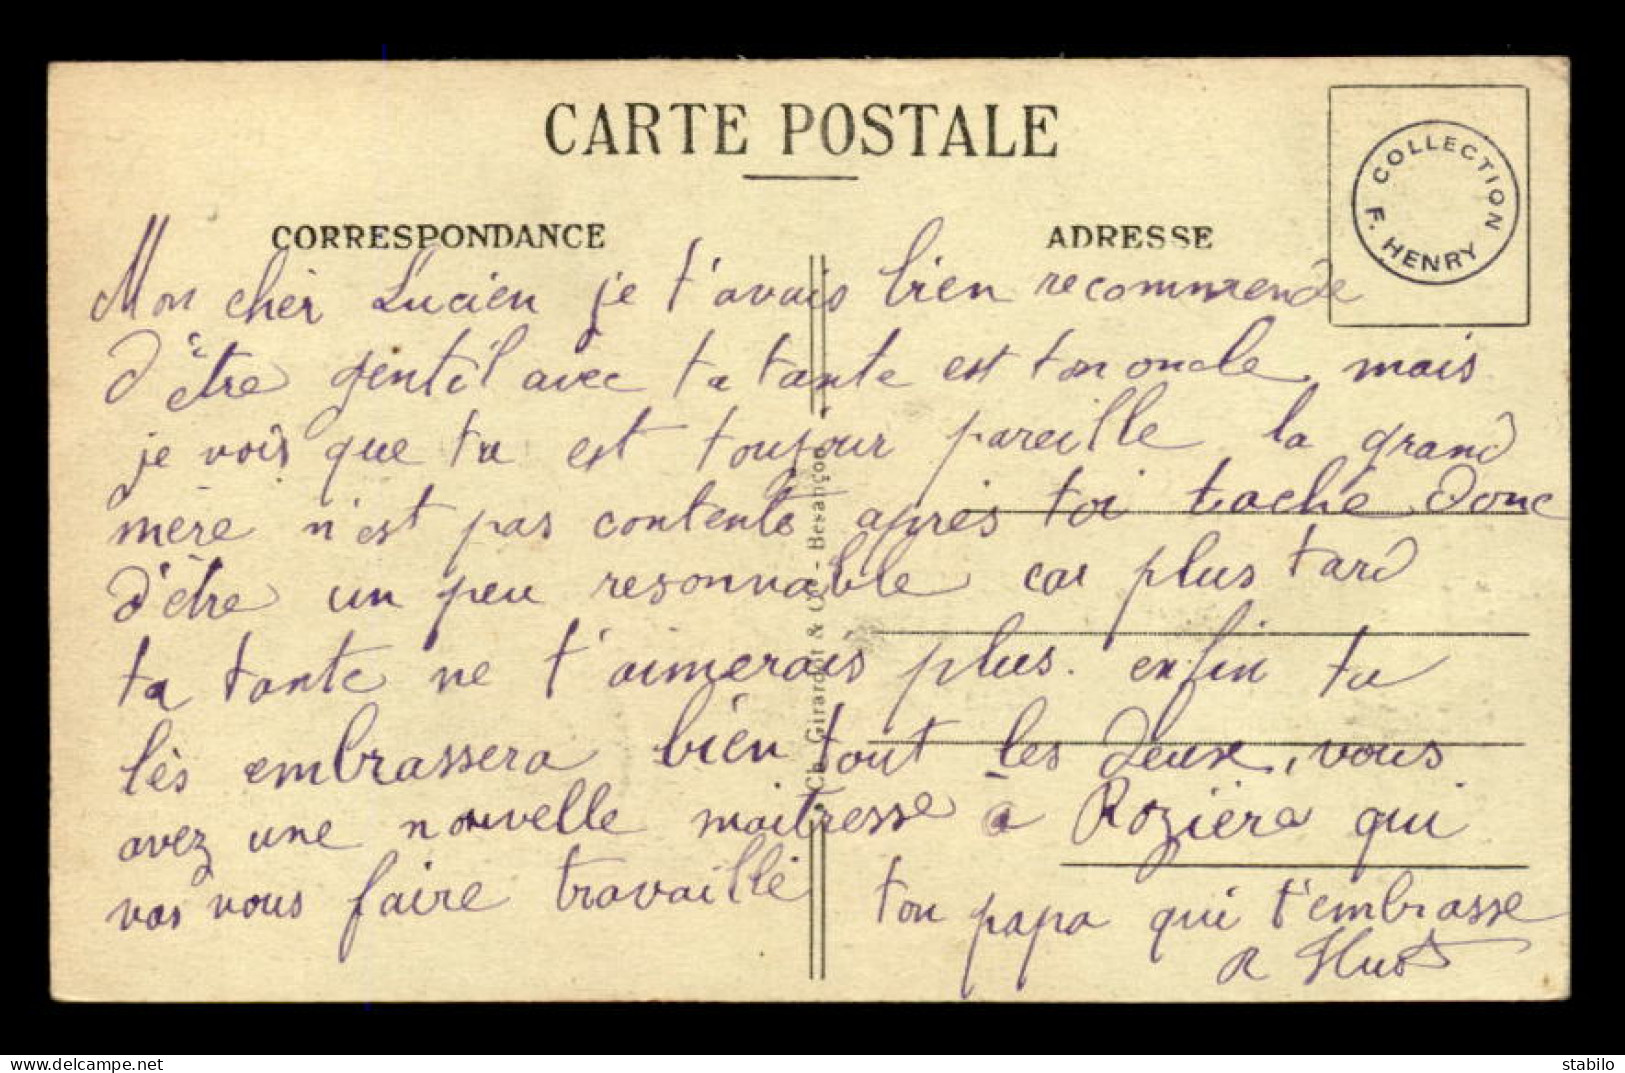 CARTE POSTALE
CORRESPONDANCE
ADRESSE
COLLECTION F. HENRY
Mon chèr Lucien je t'avais bien recommende
d'être gentil avec ta tante est ton oncle, mais
je vois que tu est toujour pareille la grand
mère n'est pas contente après toi tache donc
d'être un peu resonnable car plus tard
ta tante ne t'aimerais plus. enfin tu
lès embrassera bien tout les deux, vous
avez une nouvelle maitresse à Rozière qui
vas vous faire travaillé
ton papa qui t'embrasse
Ch. Girardot & Cie - Besançon